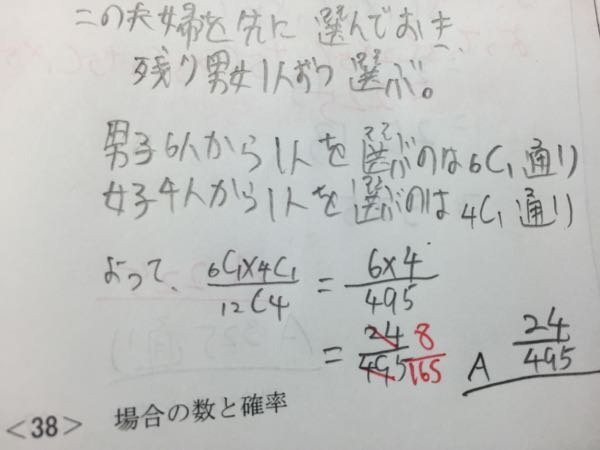 この夫婦を先に選んでおき
残り男女1人ずつ選ぶ。
男子6人から1人を選ぶのは ₆C₁ 通り
女子4人から1人を選ぶのは ₄C₁ 通り
よって、 ₆C₁×₄C₁/₁₂C₄ = 6×4/495
= 24/495 8/165 A 24/495
<38> 場合の数と確率